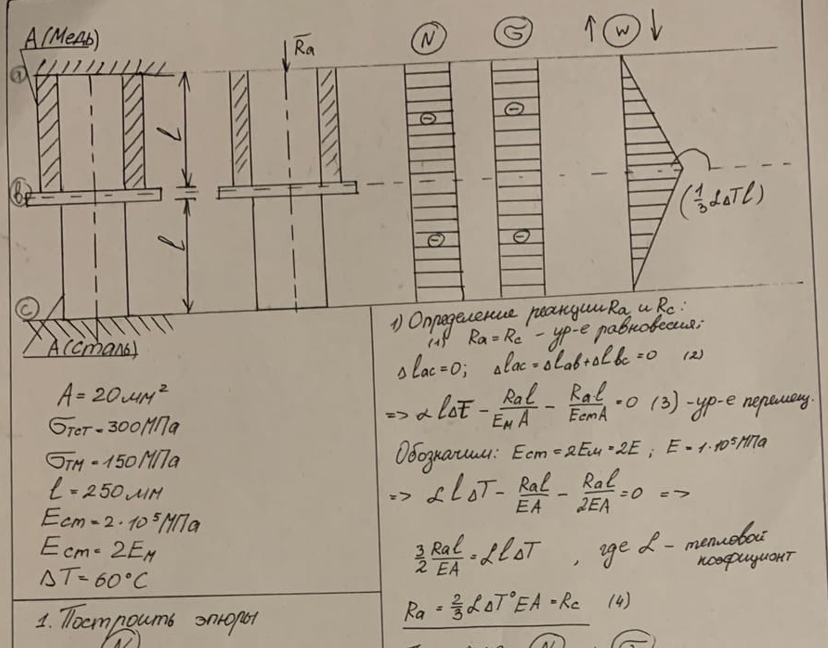 A (Медь)
R̅a
N
G
↑ W ↓
a
l
⊖
⊖
b
l
(1/3 α∆Tl)
⊖
⊖
c
A (Сталь)
A = 20 мм²
σтст = 300 МПа
σтм = 150 МПа
l = 250 мм
Eст = 2·10⁵ МПа
Eст = 2Eм
∆T = 60°C
1. Построить эпюры
N
1) Определение реакции Ra и Rc:
(1) Ra = Rc - ур-е равновесия;
∆lac = 0; ∆lac = ∆lab + ∆lbc = 0 (2)
=> αl∆t - Ral/EмA - Ral/EстA = 0 (3) - ур-е перемещ.
Обозначим: Eст = 2Eм = 2E ; E = 1·10⁵ МПа
=> αl∆T - Ral/EA - Ral/2EA = 0 =>
3/2 Ral/EA = αl∆T , где α - тепловой
коэфициент
Ra = 2/3 α∆T°EA = Rc (4)
N
G